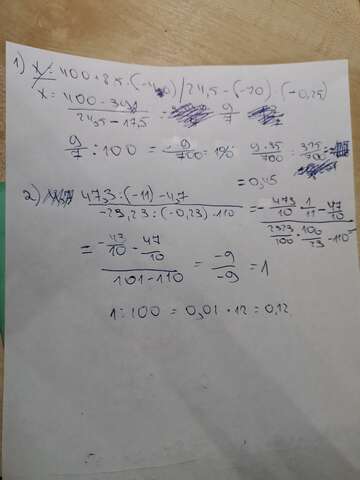 1) x = 400 + 8,5 · (-4 0) / 24,5 - (-70) · (-0,25)
x = 400 - 391 / 24,5 - 17,5 = 9/7
9/7 : 100 = 9/700 = 1% 9 · 35/700 : 315/700
= 0,45
2) 47,3 : (-11) - 4,7 / -23,23 : (-0,23) - 110 = - 473/10 · 1/11 - 47/10 / 2323/100 · 100/23 - 110
= - 43/10 - 47/10 / 101 - 110 = -9/-9 = 1
1 : 100 = 0,01 · 12 = 0,12